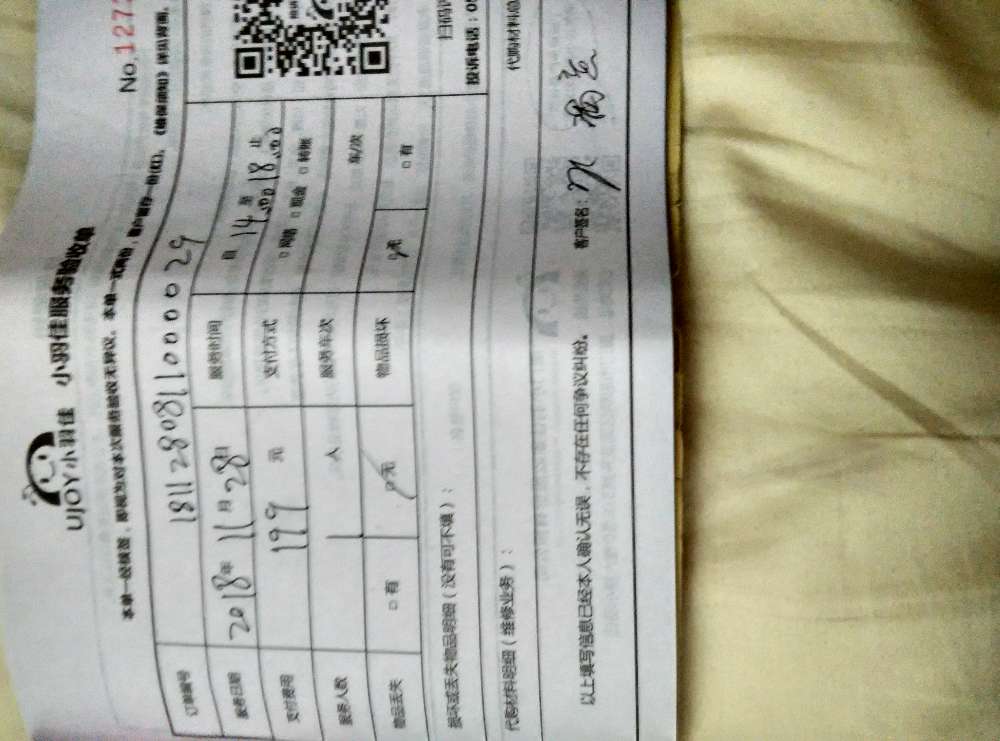 No.127
UJOY小羽佳 小羽佳服务验收单
本单一经核签，即视为对本次服务验收无异议。本单一式两份，客户留存一份(红)。《维保须知》详见背面。
订单编号 181128081100029
服务日期 2018年11月28日 服务时间 自14:00至18:00止
支付费用 199 元 支付方式 □网络 □现金 □转账
服务人数 1 人 服务车次 车/次
物品丢失 □有 □无 物品损坏 □无 □有
扫码
投诉电话：0
损坏或丢失物品明细（没有可不填）：
代购材料明细（维修业务）： 代购材料总
以上填写信息已经本人确认无误，不存在任何争议纠纷。 客户签名：